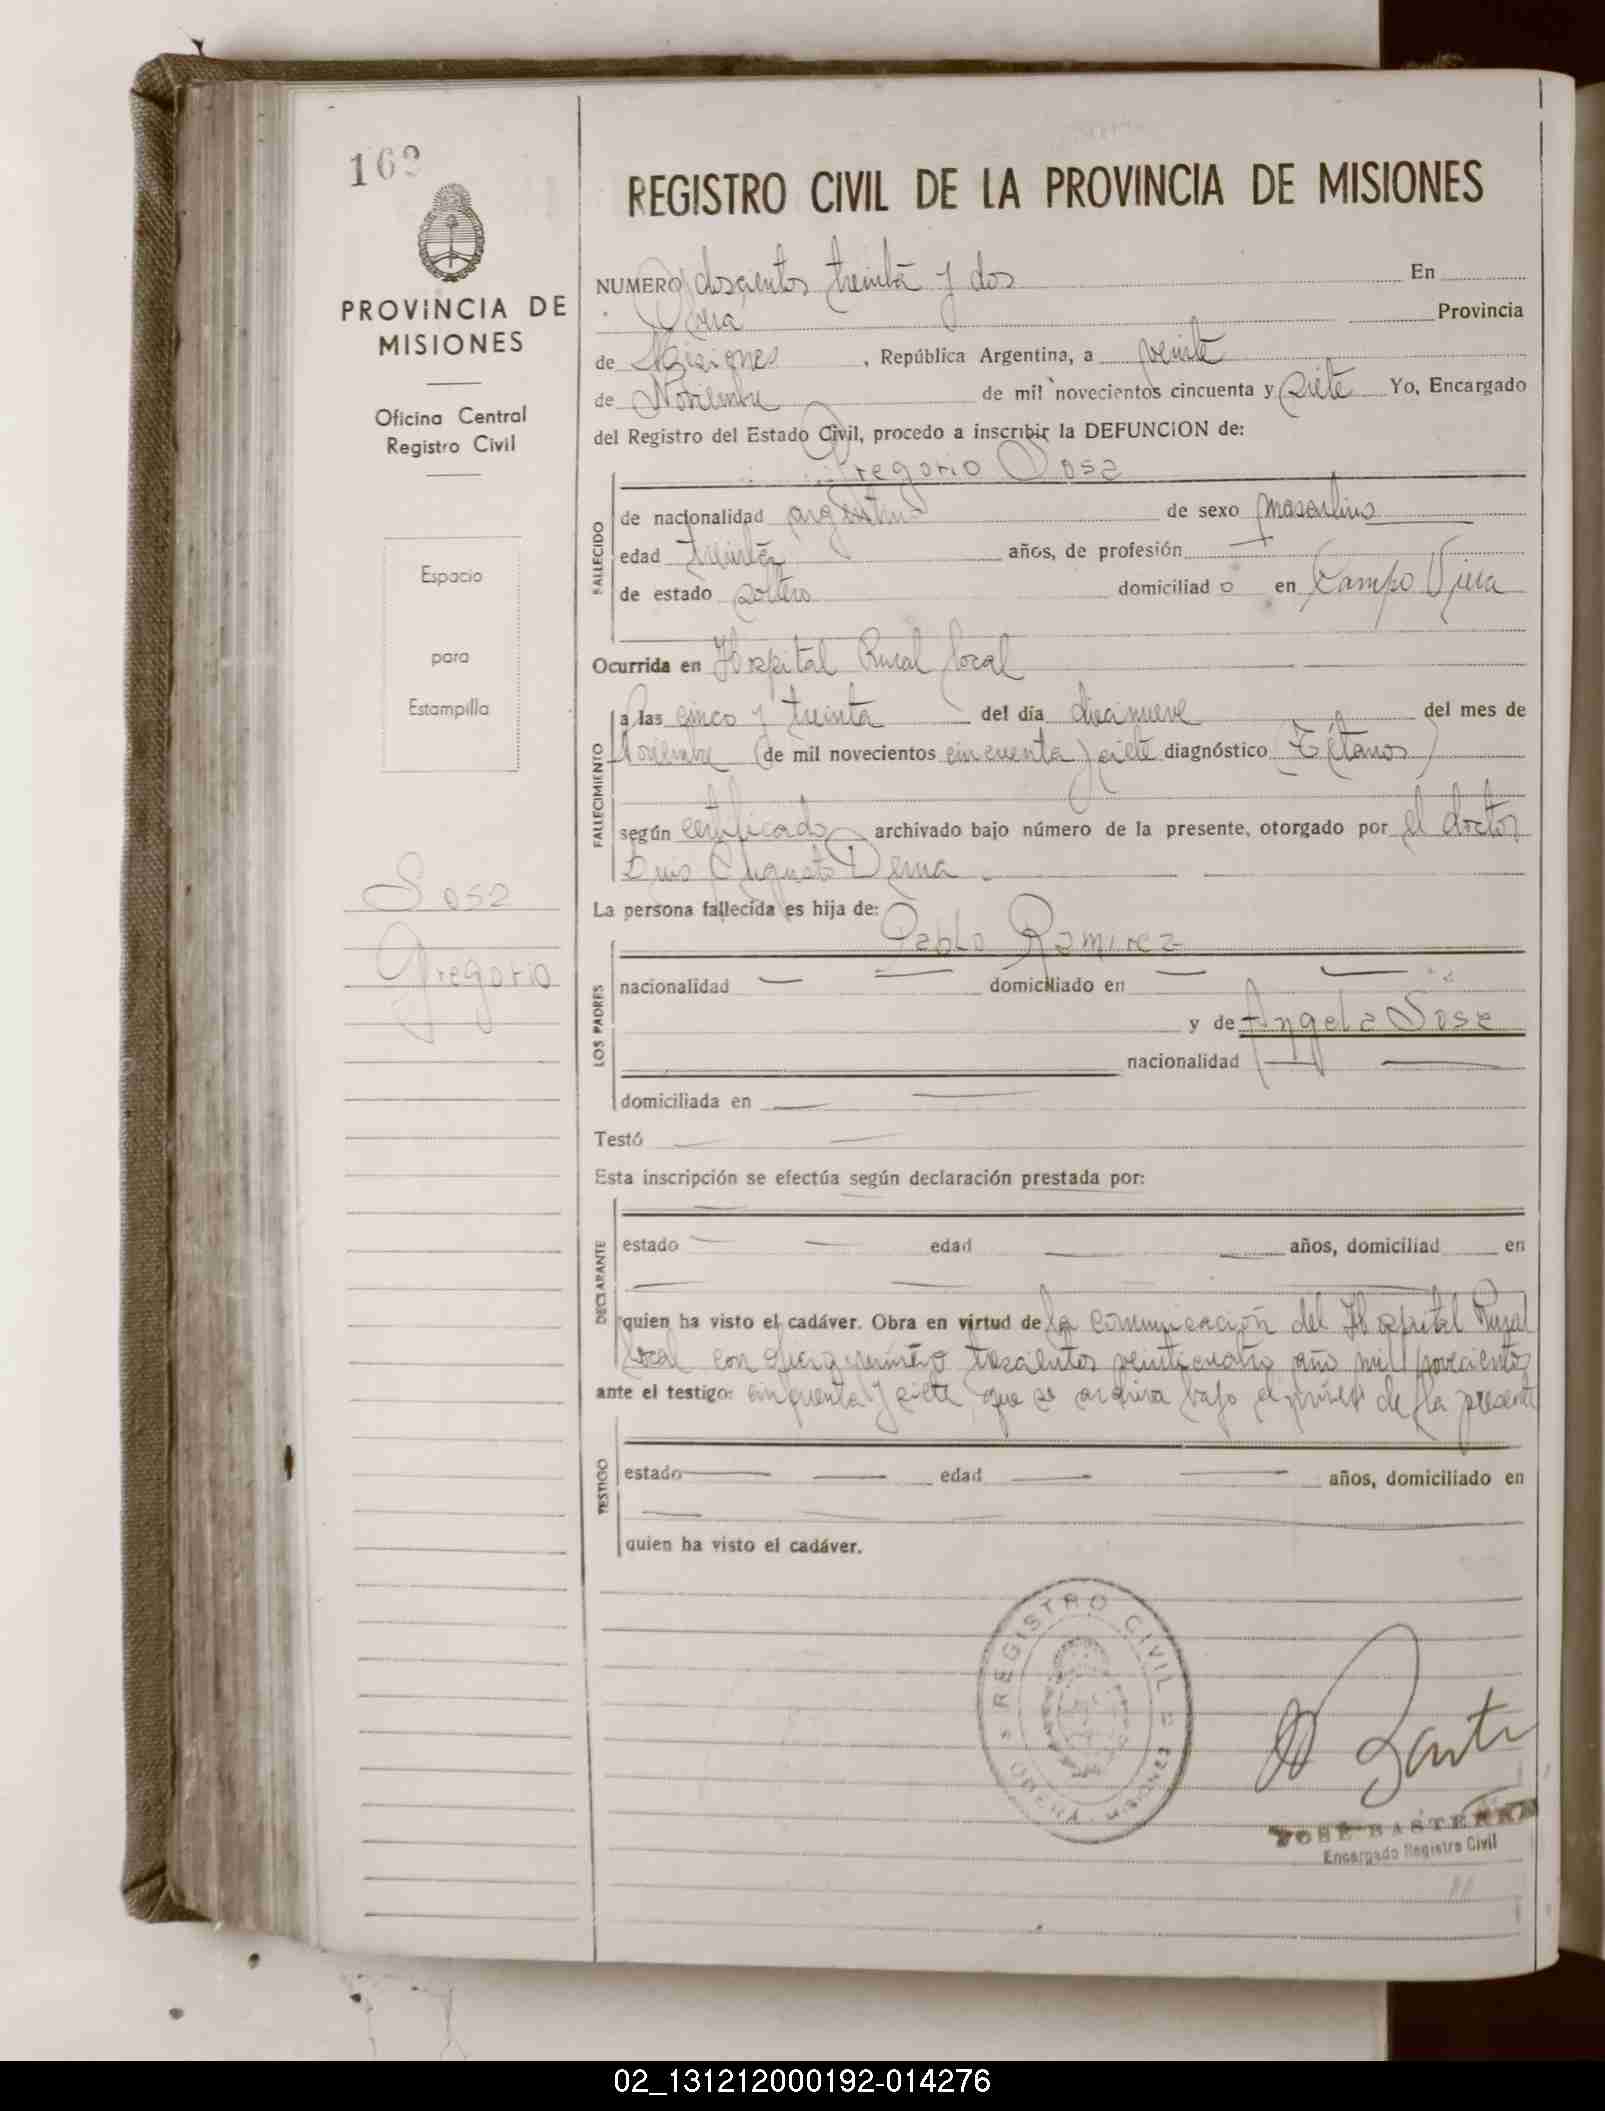 162
REGISTRO CIVIL DE LA PROVINCIA DE MISIONES
PROVINCIA DE
MISIONES
Oficina Central
Registro Civil
Espacio
para
Estampilla
Sosa
Gregorio
NUMERO doscientos treinta y dos En
Provincia
de Misiones, República Argentina, a veinte
de Noviembre de mil novecientos cincuenta y siete Yo, Encargado
del Registro del Estado Civil, procedo a inscribir la DEFUNCION de:
Gregorio Sosa
FALLECIDO
de nacionalidad argentina de sexo masculino
edad treinta años, de profesión
de estado soltero domiciliado en Campo Viera
Ocurrida en Hospital Rural local
FALLECIMIENTO
a las cinco y treinta del día diecinueve del mes de
Noviembre de mil novecientos cincuenta y siete diagnóstico (Tétanos)
según certificado archivado bajo número de la presente, otorgado por el doctor
Luis Augusto Derna
La persona fallecida es hija de:
Pablo Ramirez
LOS PADRES
nacionalidad domiciliado en
y de Angela Sosa
nacionalidad
domiciliada en
Testó
Esta inscripción se efectúa según declaración prestada por:
DECLARANTE
estado edad años, domiciliad en
quien ha visto el cadáver. Obra en virtud de la comunicación del Hospital Rural
local con trescientos veinticuatro año mil novecientos
ante el testigo: cincuenta y siete que se archiva bajo el número de la presente
TESTIGO
estado edad años, domiciliado en
quien ha visto el cadáver.
REGISTRO CIVIL
MISIONES
JOSE BASTERRA
Encargado Registro Civil
02_131212000192-014276